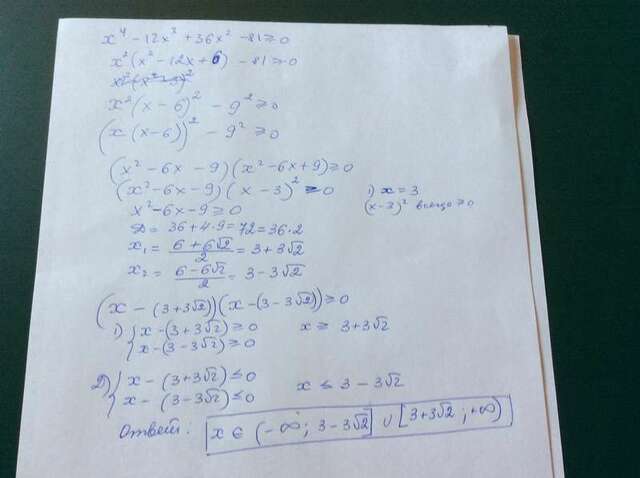 x⁴ - 12x³ + 36x² - 81 ≥ 0
x²(x² - 12x + 6) - 81 ≥ 0
x²(x - 6)² - 9² ≥ 0
(x(x-6))² - 9² ≥ 0
(x² - 6x - 9)(x² - 6x + 9) ≥ 0
(x² - 6x - 9)(x - 3)² ≥ 0
1) x = 3
(x-3)² всегда ≥ 0
x² - 6x - 9 ≥ 0
D = 36 + 4·9 = 72 = 36·2
x₁ = (6 + 6√2)/2 = 3 + 3√2
x₂ = (6 - 6√2)/2 = 3 - 3√2
(x - (3+3√2))(x - (3 - 3√2)) ≥ 0
1) { x - (3+3√2) ≥ 0 x ≥ 3+3√2
x - (3 - 3√2) ≥ 0
2) { x - (3+3√2) ≤ 0 x ≤ 3 - 3√2
x - (3 - 3√2) ≤ 0
Ответ: x ∈ (-∞; 3 - 3√2] ∪ [3+3√2; +∞)